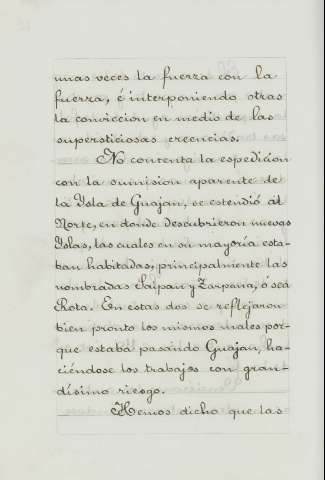 unas veces la fuerza con la
fuerza, é interponiendo otras
la conviccion en medio de las
supersticiosas creencias.
No contenta la espedicion
con la sumision aparente de
la Ysla de Guajan, se estendió al
Norte, en donde descubrieron nuevas
Yslas, las cuales en su mayoria esta-
ban habitadas; principalmente las
nombradas Saipan y Zarpana, ó sea
Rota. En estas dos se reflejaron
bien pronto los mismos males por-
que estaba pasando Guajan, ha-
ciéndose los trabajos con gran-
dísimo riesgo.
Hemos dicho que las